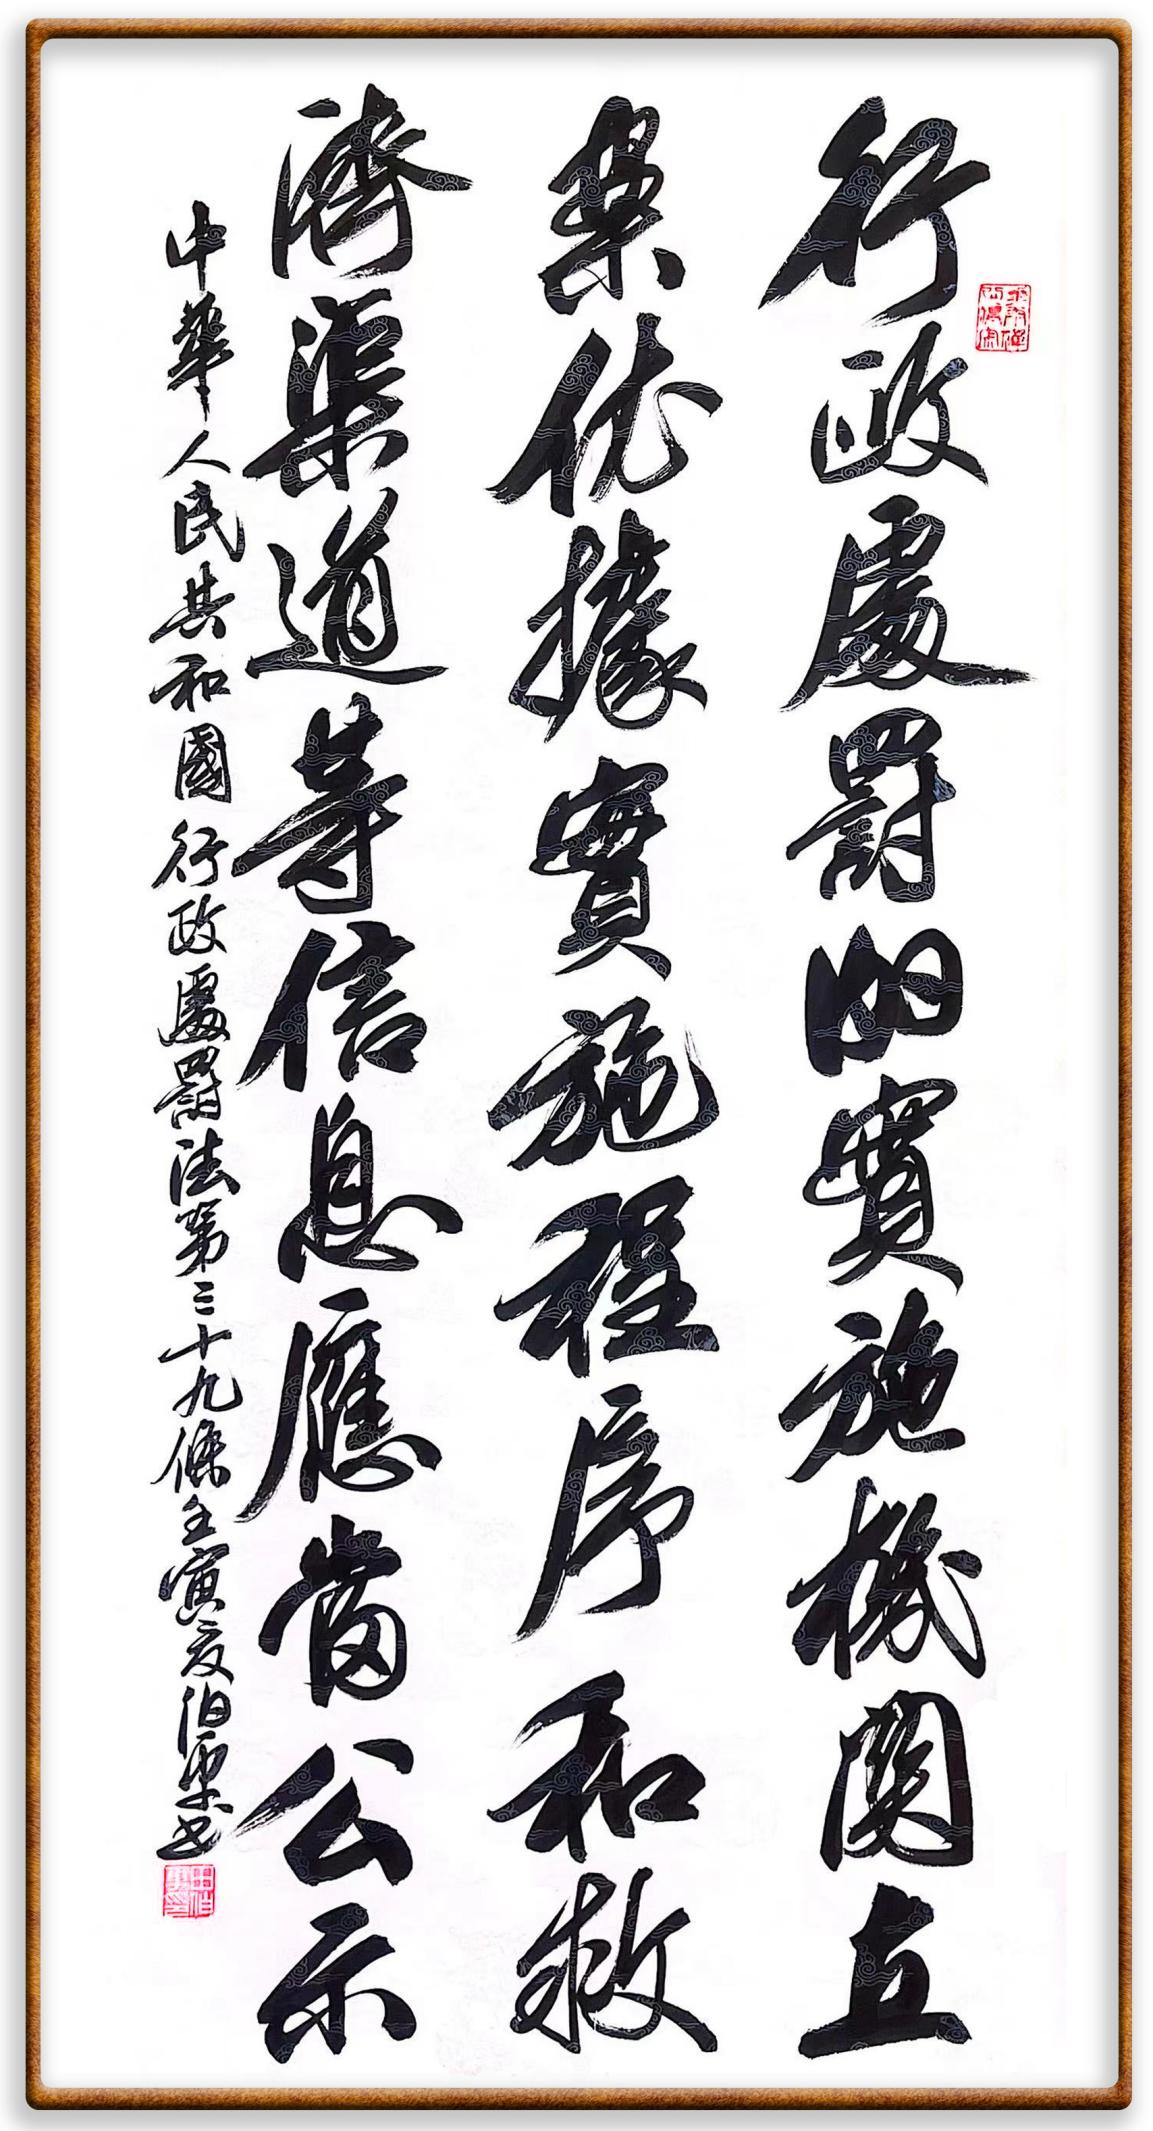 行政處罰的實施機關立
案依據實施程序和救
濟渠道等信息應當公示
中華人民共和國行政處罰法第三十九條壬寅夏伯書